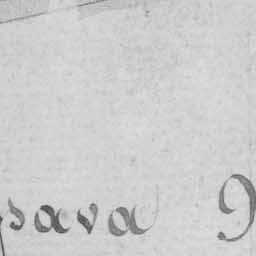 sava 9